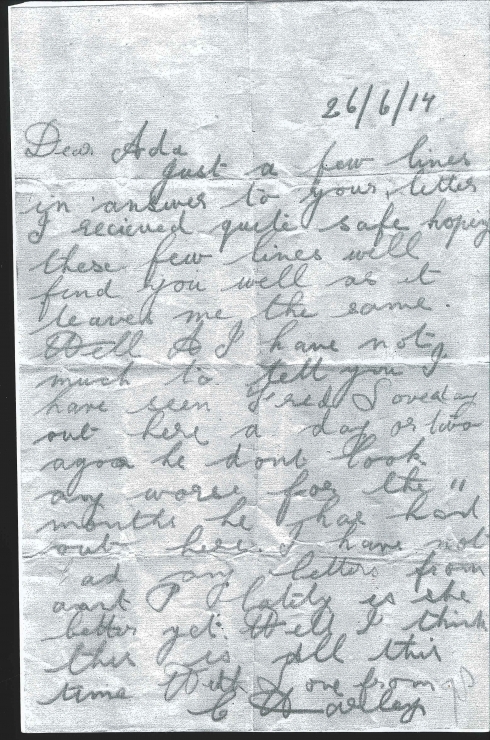 26/6/14
Dear Ada
Just a few lines
in answer to your letter
I recieved quite safe hoping
these few lines will
find you well as it
leaves me the same.
Well A I have not
much to tell you I
have seen Fred Loveday
out here a day or two
agoa he dont look
any worse for the 11
months he has had
out here. I have not
had any letters from
aunt P lately is she
better yet. Well I think
this is all this
time With Love from
C